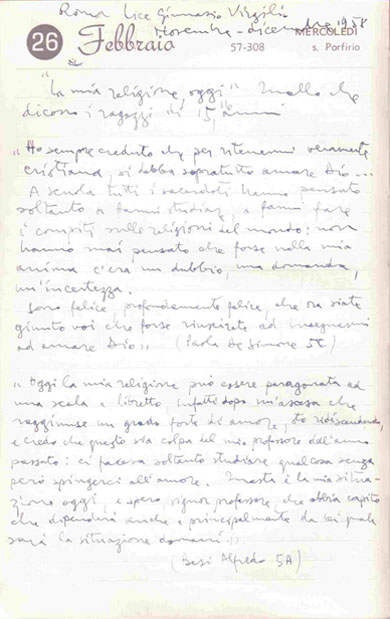 Roma Liceo Ginnasio Virgilio
Novembre - dicembre 1958
26 Febbraio
MERCOLEDÌ
57-308
s. Porfirio
"La mia religione oggi" Quello che
dicono i ragazzi di 15, anni
"Ho sempre creduto che per ritenermi veramente
cristiana, si debba sopratutto amare Dio...
A scuola tutti i sacerdoti hanno pensato
soltanto a farmi studiare, a farmi fare
i compiti sulle religioni del mondo: non
hanno mai pensato che forse nella mia
anima c'era un dubbio, una domanda,
un'incertezza.
Sono felice, profondamente felice, che ora siate
giunto voi che forse riuscirete ad insegnarmi
ad amare Dio" (Paola De Simone 5C)
"Oggi la mia religione può essere paragonata ad
una scala a libretto, infatti dopo un'ascesa che
raggiunse un grado forte di amore, sto ridiscendendo,
e credo che questo sia colpa del mio professore dell'anno
passato: ci faceva soltanto studiare qualcosa senza
però spingerci all'amore. Questa è la mia situa-
zione oggi, e spero, signor professore, che abbia capito
che dipenderà anche e principalmente da lei quale
sarà la situazione domani."
( Alfredo 5A)